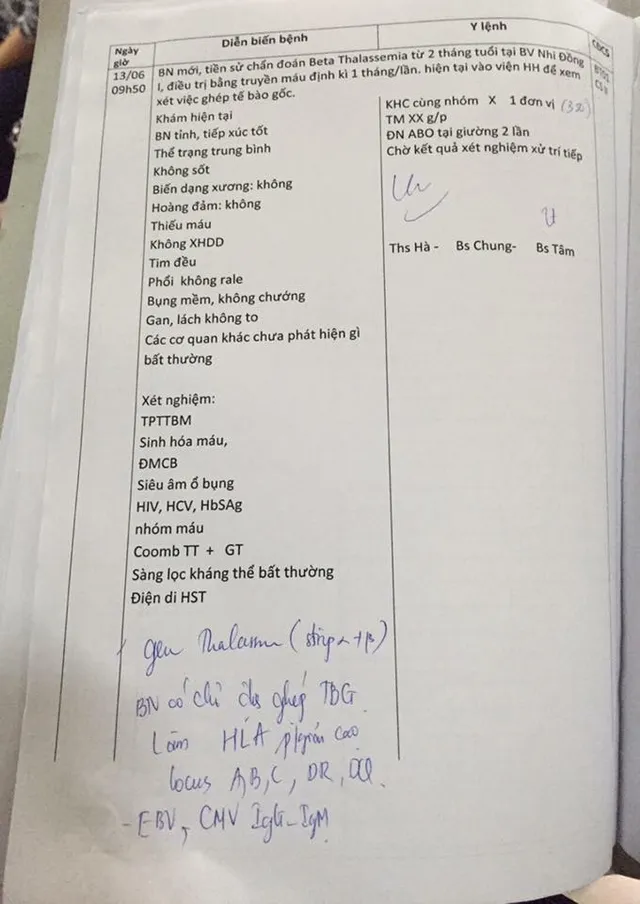 Ngày giờ
Diễn biến bệnh
Y lệnh
CĐCS
13/06
09h50
BN mới, tiền sử chẩn đoán Beta Thalassemia từ 2 tháng tuổi tại BV Nhi Đồng
I, điều trị bằng truyền máu định kì 1 tháng/lần. hiện tại vào viện HH để xem
xét việc ghép tế bào gốc.
Khám hiện tại
BN tỉnh, tiếp xúc tốt
Thể trạng trung bình
Không sốt
Biến dạng xương: không
Hoàng đảm: không
Thiếu máu
Không XHDD
Tim đều
Phổi không rale
Bụng mềm, không chướng
Gan, lách không to
Các cơ quan khác chưa phát hiện gì
bất thường
Xét nghiệm:
TPTTBM
Sinh hóa máu,
ĐMCB
Siêu âm ổ bụng
HIV, HCV, HbSAg
nhóm máu
Coomb TT + GT
Sàng lọc kháng thể bất thường
Điện di HST
gen Thalassemia (strip α + β)
BN có chỉ định ghép TBG
Làm HLA p/giải cao
locus A, B, C, DR, DQ.
- EBV, CMV IgG - IgM
KHC cùng nhóm X 1 đơn vị
TM XX g/p
ĐN ABO tại giường 2 lần
Chờ kết quả xét nghiệm xử trí tiếp
Ths Hà - Bs Chung- Bs Tâm